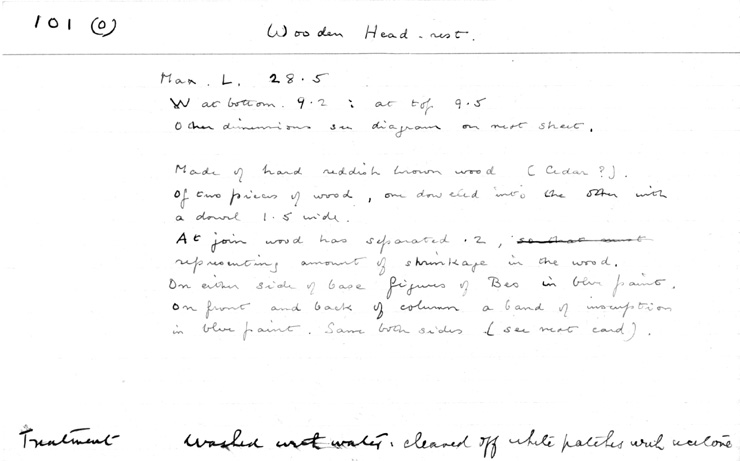 101 (o)
Wooden Head-rest.
Max. L. 28.5
W at bottom. 9.2 ; at top 9.5
Other dimensions see diagram on next sheet.
Made of hard reddish brown wood (Cedar?).
Of two pieces of wood, one dowelled into the other with
a dowel 1.5 wide.
At join wood has separated .2, so that must
representing amount of shrinkage in the wood.
On either side of base figures of Bes in blue paint.
On front and back of column a band of inscription
in blue paint. Same both sides (see next card).
Treatment washed with water. cleaned off white patches with acetone